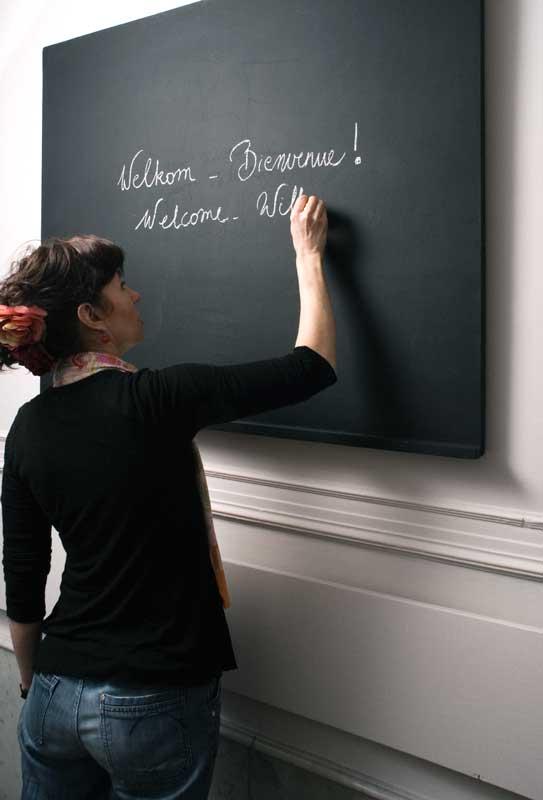 Welkom - Bienvenue!
Welcome - Will